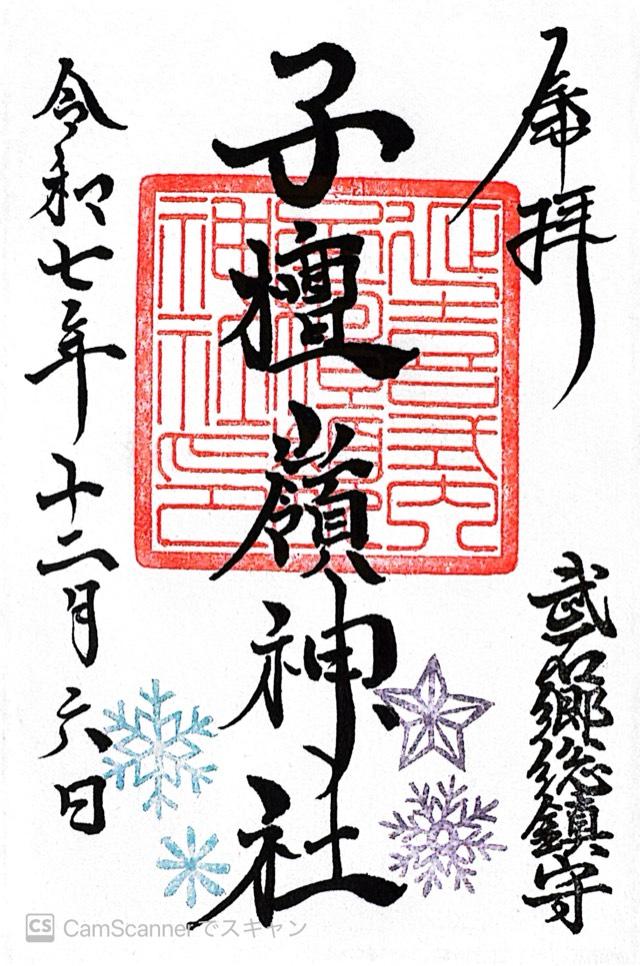 奉拝
武石郷総鎮守
子檀嶺神社
延喜式内
神社印
令和七年十二月六日
CS CamScannerでスキャン